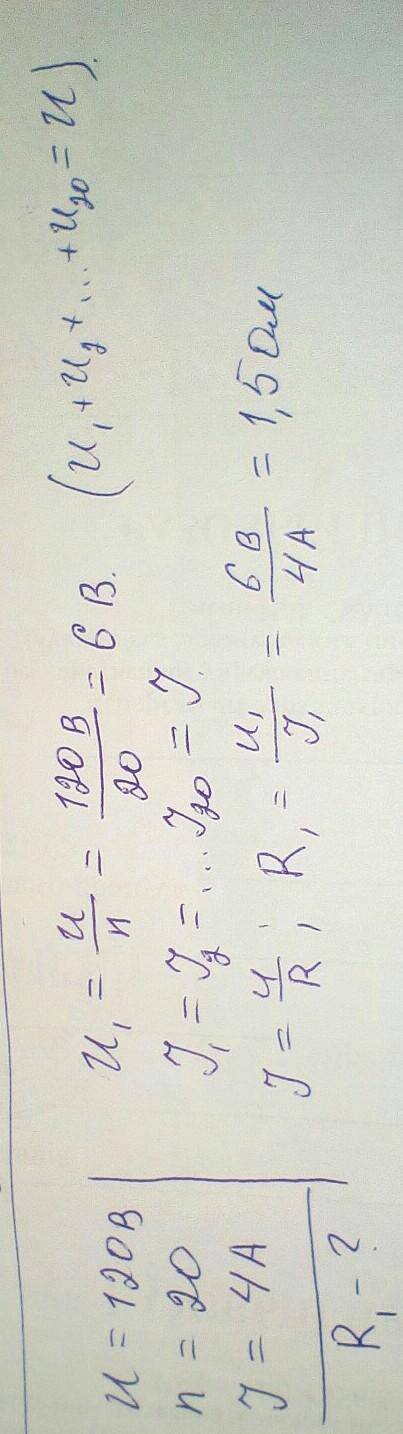 U = 120 В
n = 20
I = 4 А
R₁ - ?
U₁ = U/n = 120 В/20 = 6 В. (U₁ + U₂ + ... + U₂₀ = U).
I₁ = I₂ = ... I₂₀ = I.
I = U/R ; R₁ = U₁/I₁ = 6 В/4 А = 1,5 Ом